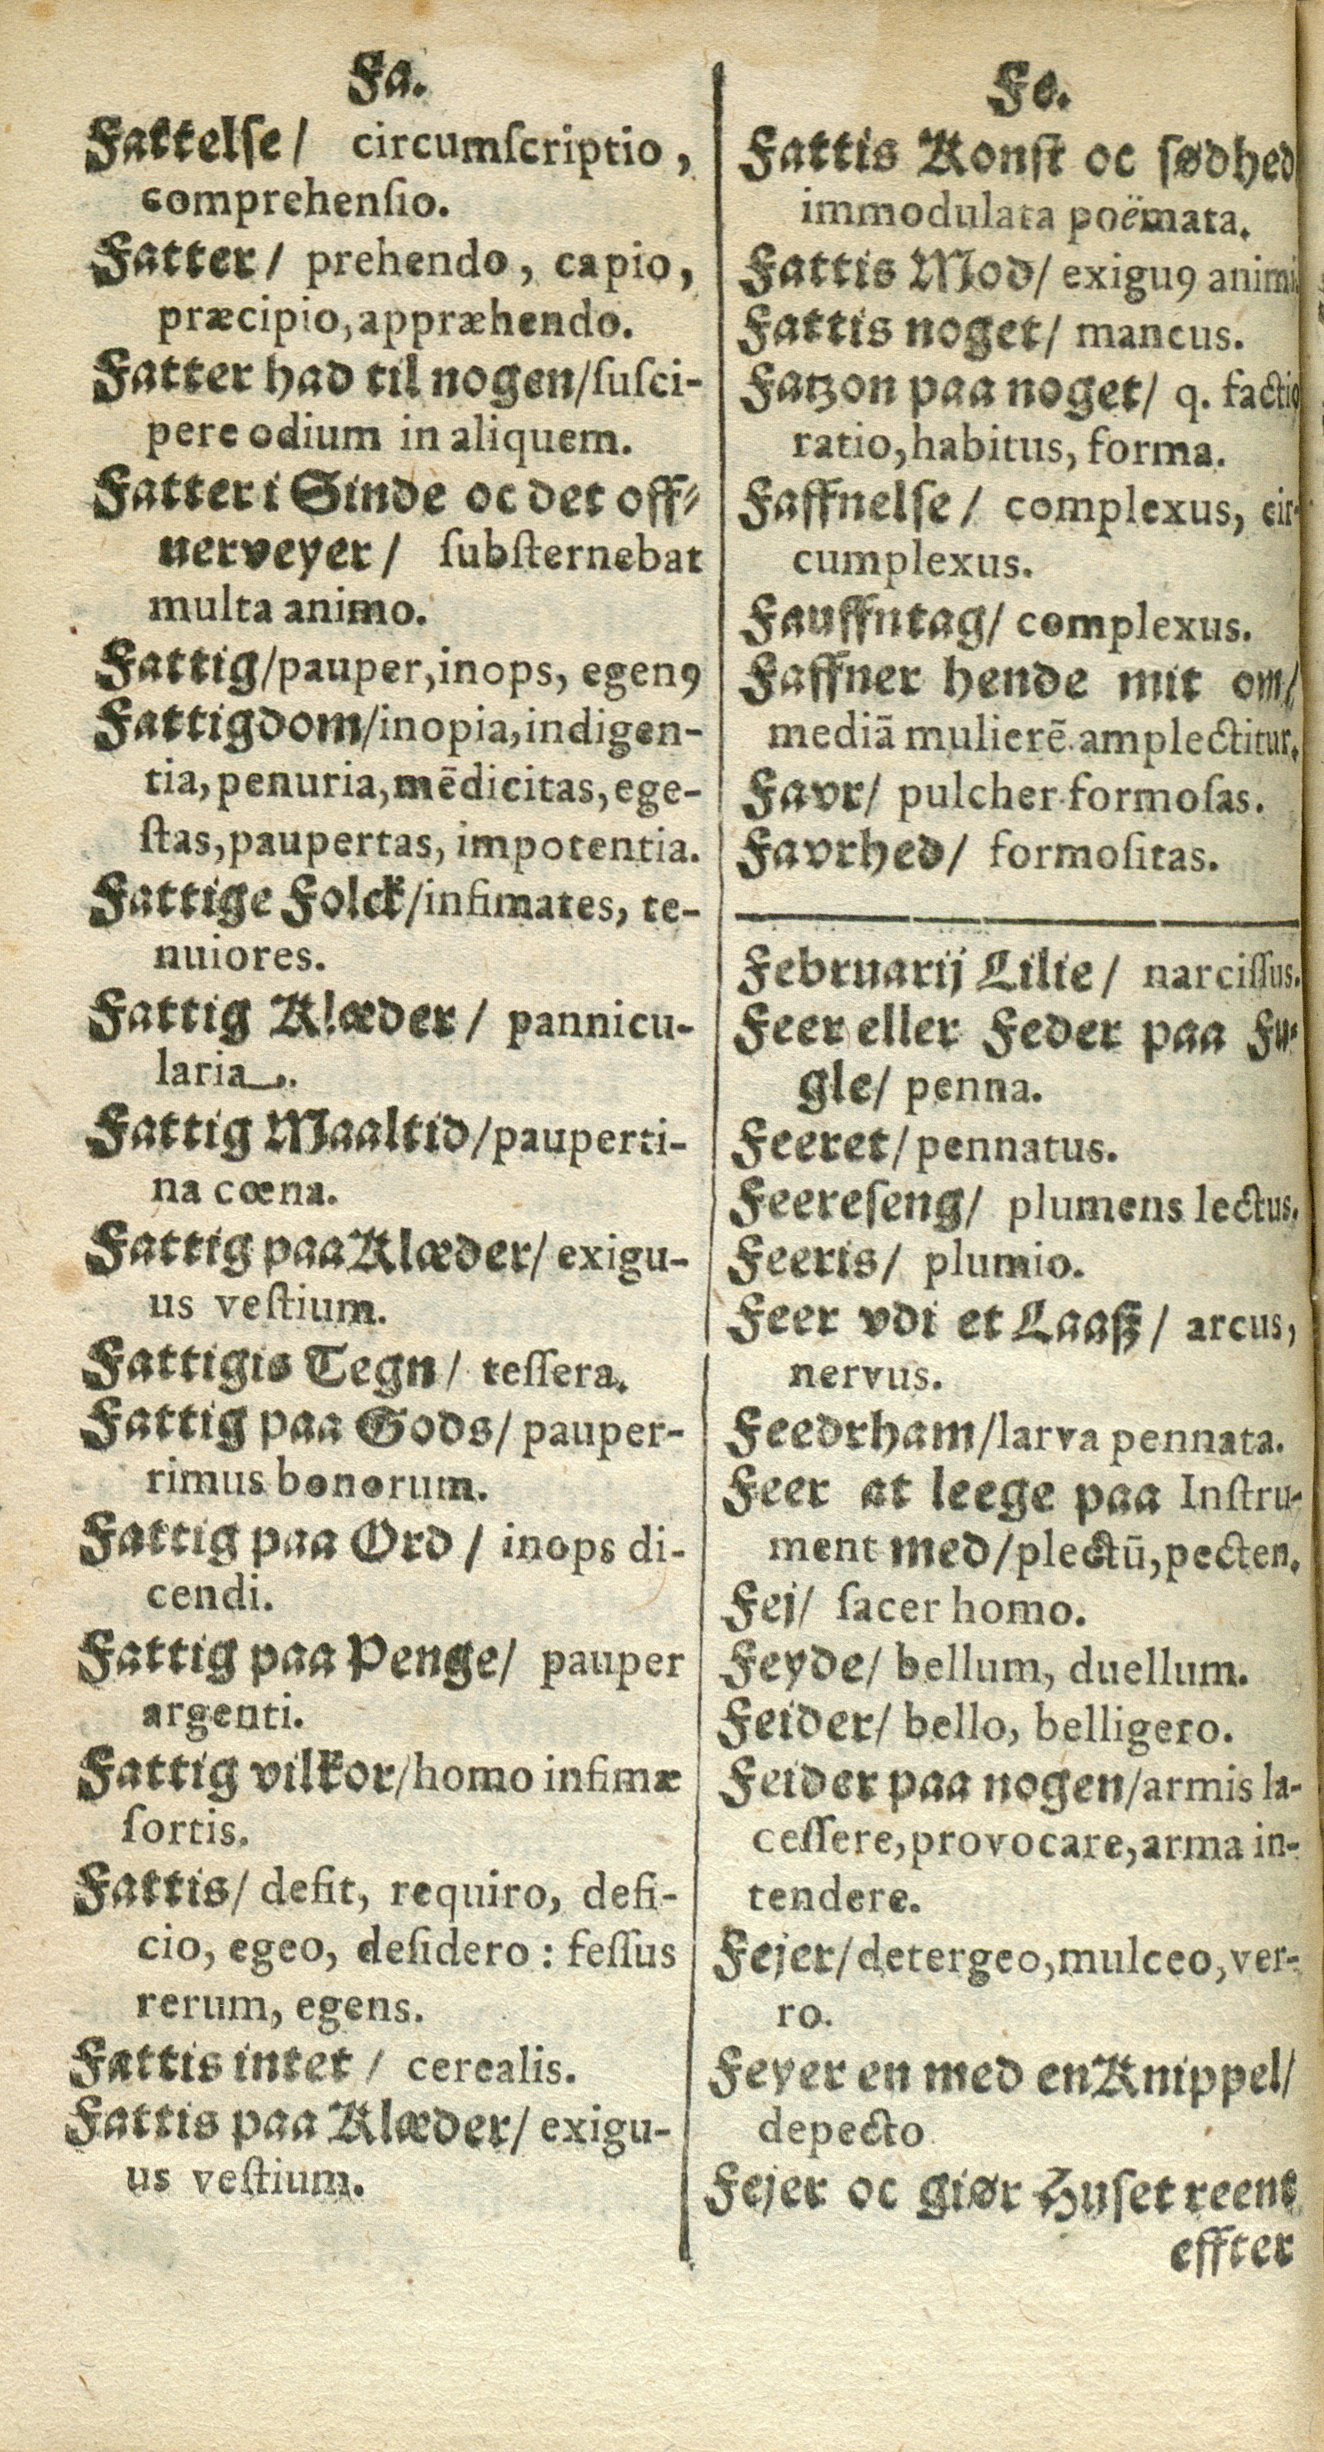 Fa.
Fattelſe / circumſcriptio,
comprehenſio.
Fatter / prehendo, capio,
præcipio, appræhendo.
Fatter had til nogen / ſuſci-
pere odium in aliquem.
Fatter i Sinde oc det off-
nerveyer / ſubſternebat
multa animo.
Fattig / pauper, inops, egenꝰ
Fattigdom / inopia, indigen-
tia, penuria, mēdicitas, ege-
ſtas, paupertas, impotentia.
Fattige Folck / infimates, te-
nuiores.
Fattig Klæder / pannicu-
laria.
Fattig Maaltid / pauperti-
na cœna.
Fattig paa Klæder / exigu-
us veſtium.
Fattigis Tegn / teſſera.
Fattig paa Gods / pauper-
rimus bonorum.
Fattig paa Ord / inops di-
cendi.
Fattig paa Penge / pauper
argenti.
Fattig vilkor / homo infimæ
ſortis.
Fattis / defit, requiro, defi-
cio, egeo, deſidero : feſſus
rerum, egens.
Fattis intet / cerealis.
Fattis paa Klæder / exigu-
us veſtium.
Fe.
Fattis Konſt oc ſødhed
immodulata poëmata.
Fattis Mod / exiguꝰ animi
Fattis noget / mancus.
Fatzon paa noget / q. factio
ratio, habitus, forma.
Faffnelſe / complexus, cir-
cumplexus.
Fauffntag / complexus.
Faffner hende mit om /
mediā mulierē amplectitur.
Favr / pulcher formoſas.
Favrhed / formoſitas.
Februarij Lilie / narciſſus.
Feer eller Feder paa Fu-
gle / penna.
Feeret / pennatus.
Feereſeng / plumens lectus.
Feeris / plumio.
Feer vdi et Laaſz / arcus,
nervus.
Feedrham / larva pennata.
Feer at leege paa Inſtru-
ment med / plectū, pecten.
Fej / ſacer homo.
Feyde / bellum, duellum.
Feider / bello, belligero.
Feider paa nogen / armis la-
ceſſere, provocare, arma in-
tendere.
Fejer / detergeo, mulceo, ver-
ro.
Feyer en med en Knippel /
depecto
Fejer oc giør Huſet reent
effter